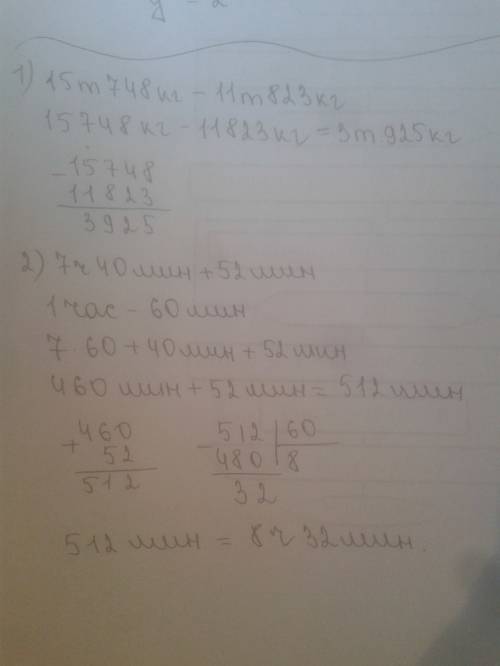 y = 2
1) 15т748кг - 11т823кг
15748кг - 11823кг = 3т925кг
- 15748
11823
3925
2) 7ч 40мин + 52мин
1час - 60мин
7 · 60 + 40мин + 52мин
460мин + 52мин = 512мин
+ 460 - 512 | 60
52 480 | 8
512 32
512мин = 8ч 32мин.